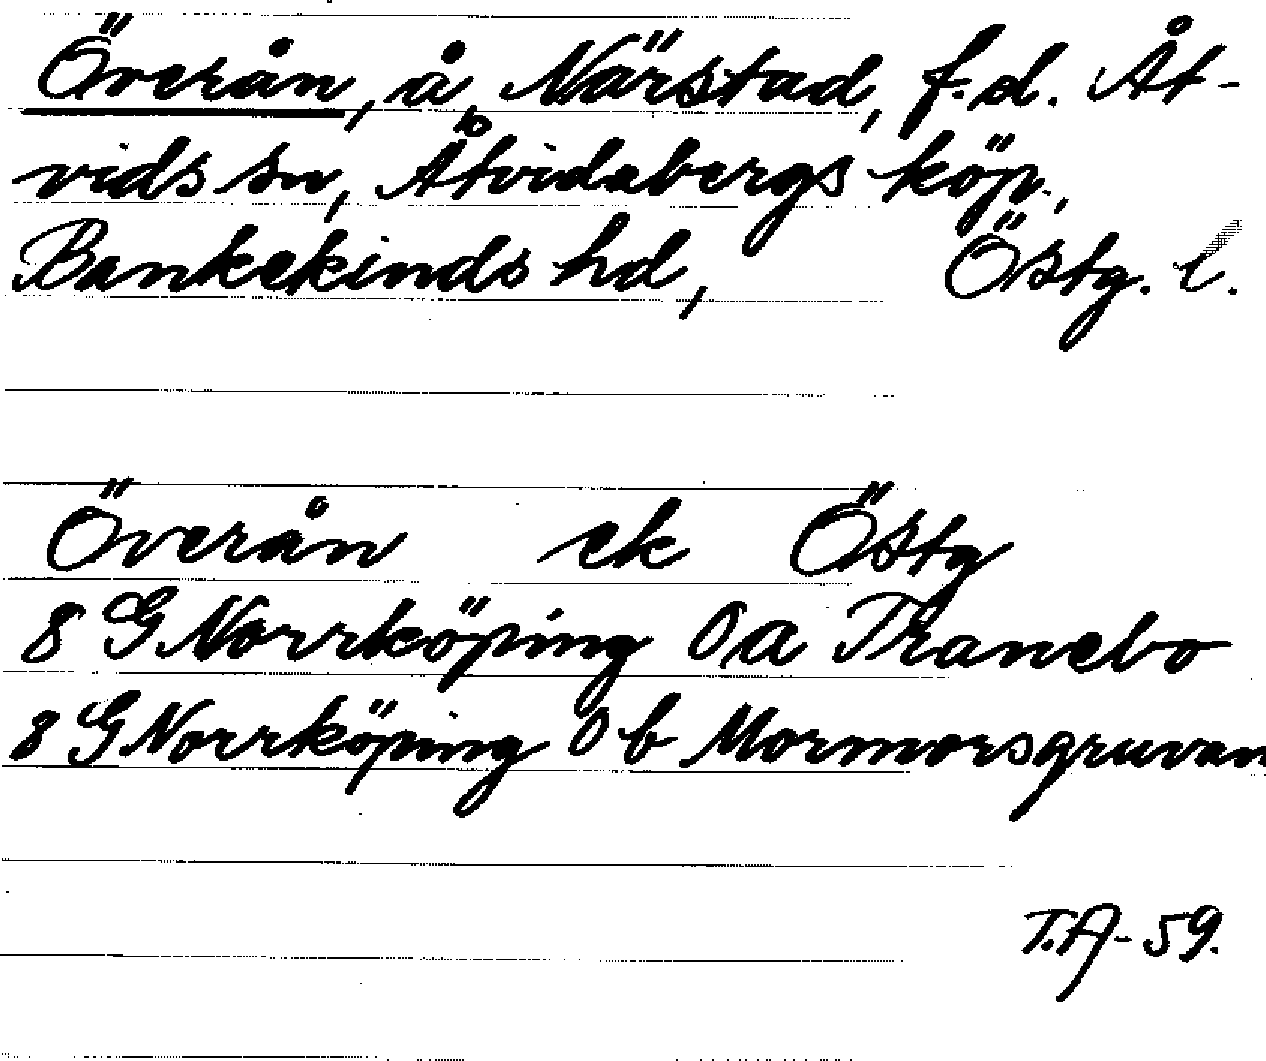 Överån, å, Närstad, f.d. Åt-
vids sn, Åtvidabergs köp.,
Bankekinds hd, Östg. l.
Överån ek Östg
8 G Norrköping 0 a Tranebo
8 G Norrköping 0 b Mormorsgruvan
T.A-59.